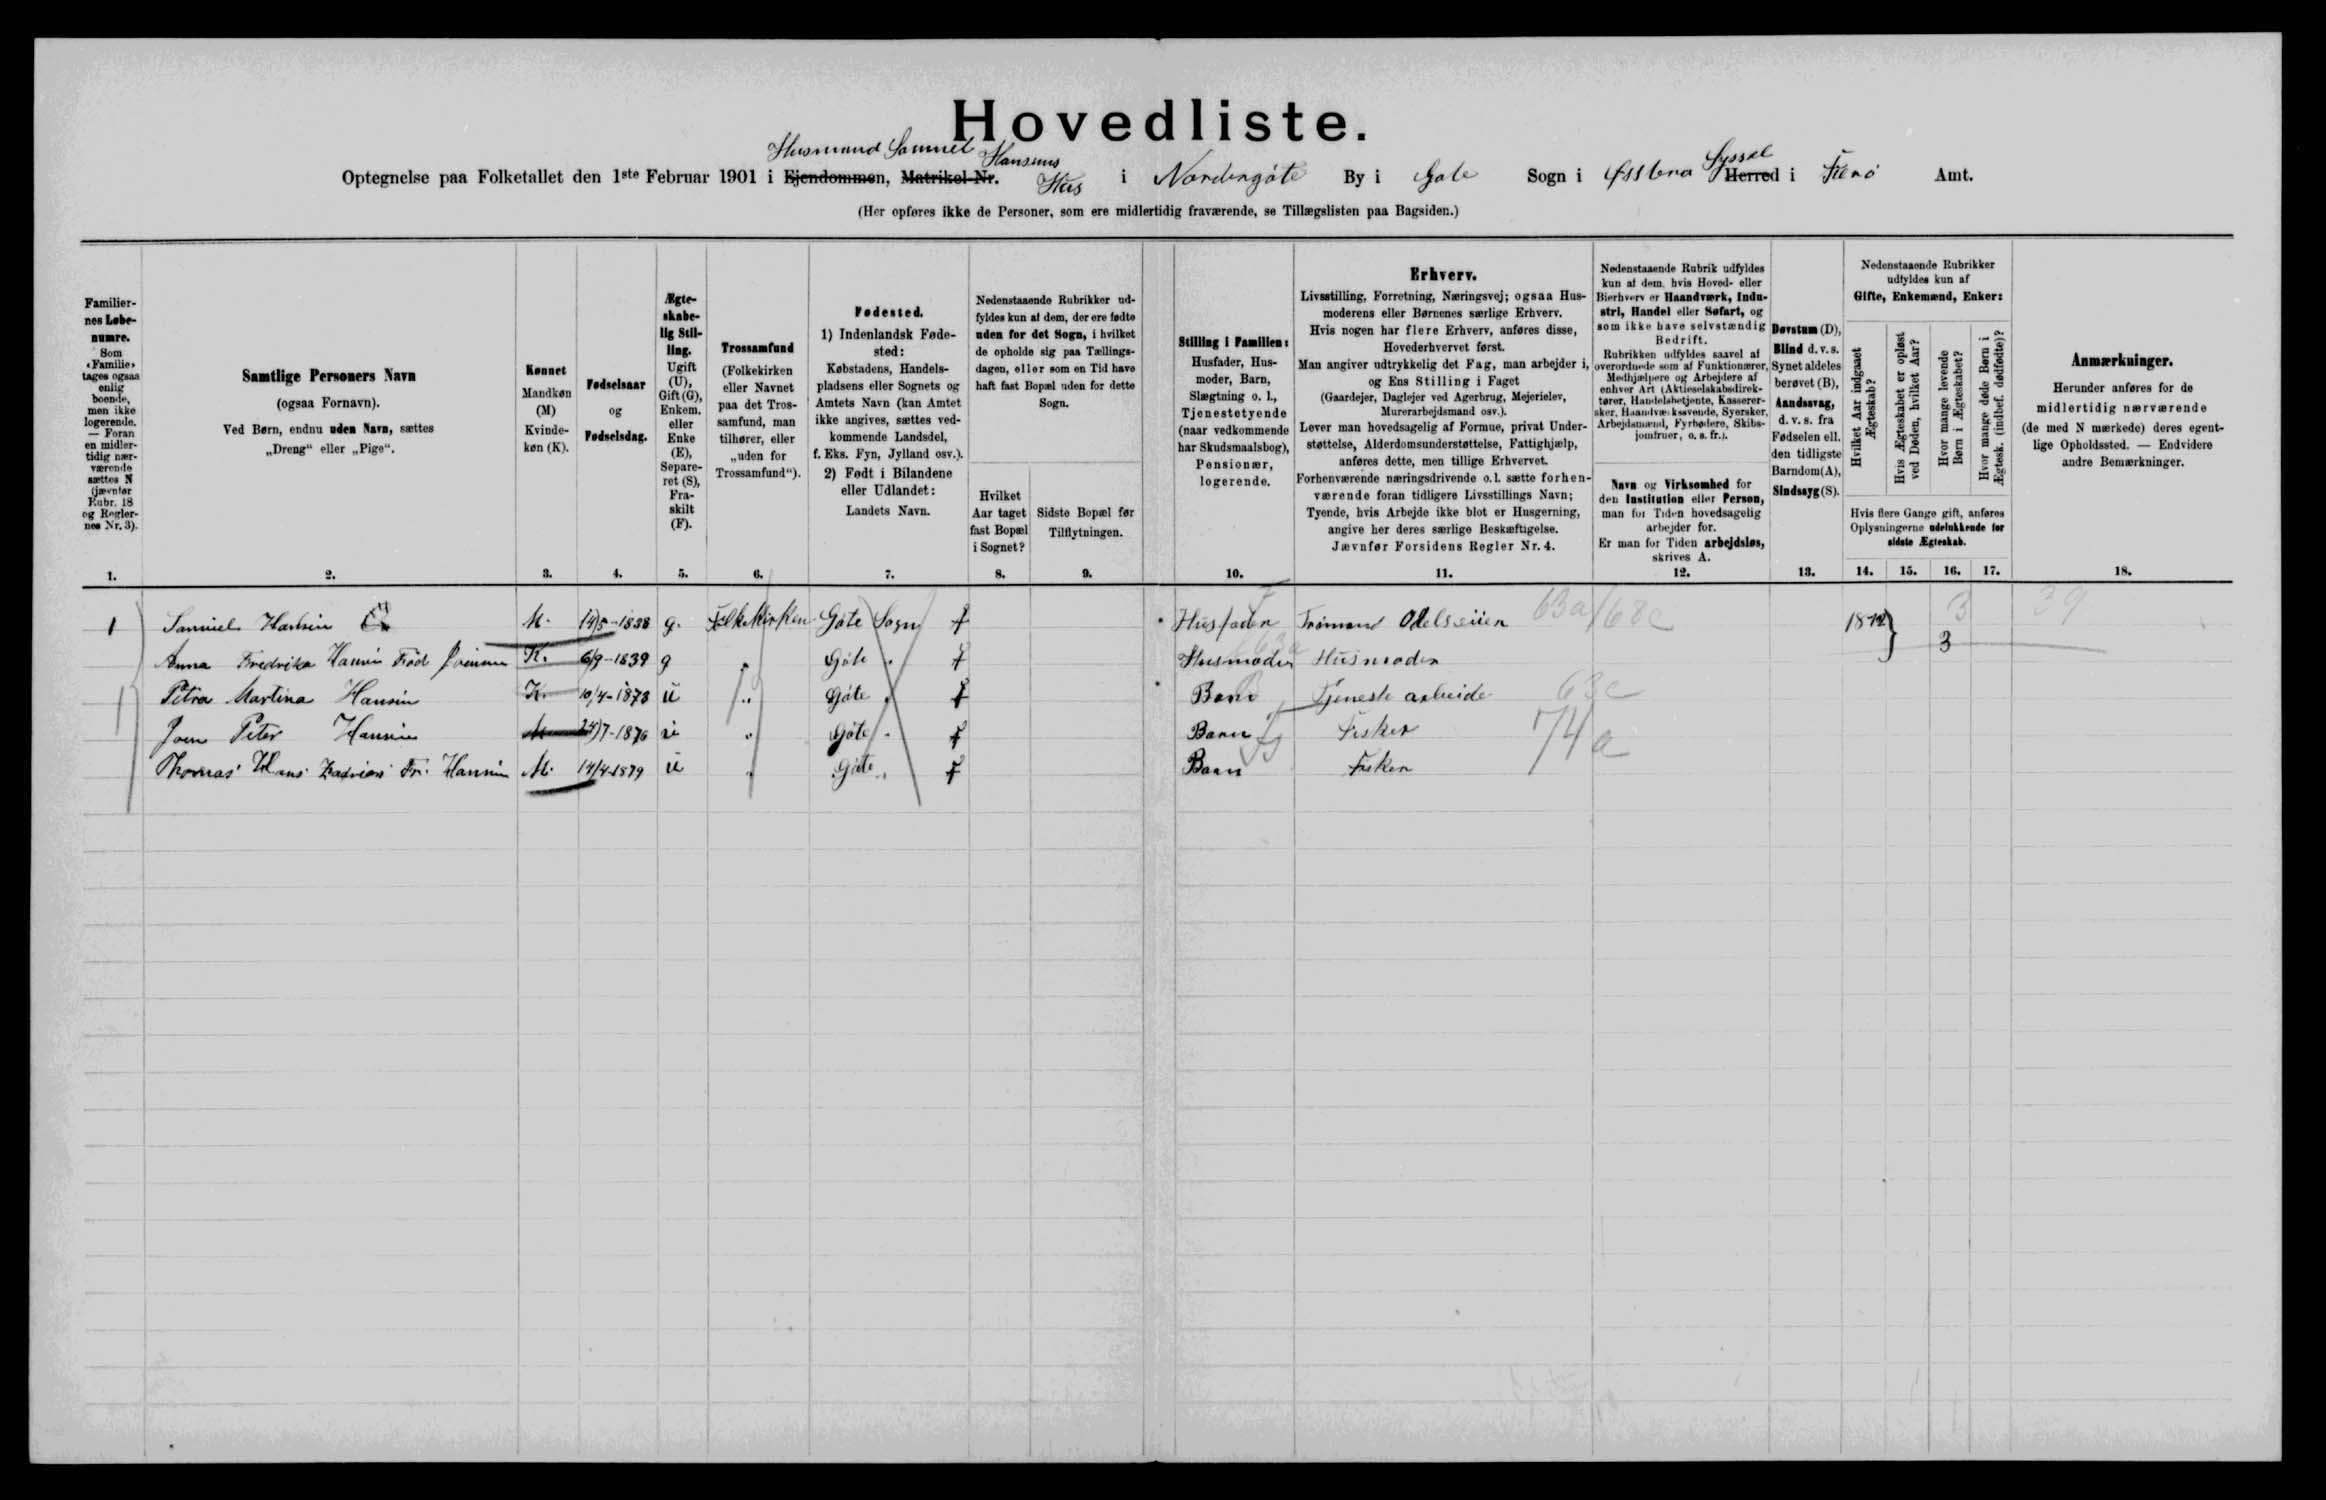 Hovedliste.
Husmand Samuel Hansens
Optegnelse paa Folketallet den 1ste Februar 1901 i Ejendommen, Matrikel-Nr. Hus i Nordergöte By i Göte Sogn i Østerø Syssel Herred i Færø Amt.
(Her opføres ikke de Personer, som ere midlertidig fraværende, se Tillægslisten paa Bagsiden.)
Familiernes Løbenumre. Som «Familie» tages ogsaa enlig boende, men ikke logerende. — Foran en midlertidig nærværende sættes N (jævnfør Rubr. 18 og Reglernes Nr. 3).
Samtlige Personers Navn (ogsaa Fornavn). Ved Børn, endnu uden Navn, sættes „Dreng“ eller „Pige“.
Kønnet Mandkøn (M) Kvindekøn (K).
Fødselsaar og Fødselsdag.
Ægteskabelig Stilling. Ugift (U), Gift (G), Enkem. eller Enke (E), Separeret (S), Fraskilt (F).
Trossamfund (Folkekirken eller Navnet paa det Trossamfund, man tilhører, eller „uden for Trossamfund“).
Fødested. 1) Indenlandsk Fødested: Købstadens, Handelspladsens eller Sognets og Amtets Navn (kan Amtet ikke angives, sættes vedkommende Landsdel, f. Eks. Fyn, Jylland osv.). 2) Født i Bilandene eller Udlandet: Landets Navn.
Nedenstaaende Rubrikker udfyldes kun af dem, der ere fødte uden for det Sogn, i hvilket de opholde sig paa Tællingsdagen, eller som en Tid have haft fast Bopæl uden for dette Sogn.
Hvilket Aar taget fast Bopæl i Sognet?
Sidste Bopæl før Tilflytningen.
Stilling i Familien: Husfader, Husmoder, Barn, Slægtning o. l., Tjenestetyende (naar vedkommende har Skudsmaalsbog), Pensionær, logerende.
Erhverv.
Livsstilling, Forretning, Næringsvej; ogsaa Husmoderens eller Børnenes særlige Erhverv.
Hvis nogen har flere Erhverv, anføres disse, Hovederhvervet først.
Man angiver udtrykkelig det Fag, man arbejder i, og Ens Stilling i Faget
(Gaardejer, Daglejer ved Agerbrug, Mejerielev, Murerarbejdsmand osv.).
Lever man hovedsagelig af Formue, privat Understøttelse, Alderdomsunderstøttelse, Fattighjælp, anføres dette, men tillige Erhvervet.
Forhenværende næringsdrivende o. l. sætte forhenværende foran tidligere Livsstillings Navn; Tyende, hvis Arbejde ikke blot er Husgerning, angive her deres særlige Beskæftigelse.
Jævnfør Forsidens Regler Nr. 4.
Nedenstaaende Rubrik udfyldes kun af dem, hvis Hoved- eller Bierhverv er Haandværk, Industri, Handel eller Søfart, og som ikke have selvstændig Bedrift.
Rubrikken udfyldes saavel af overordnede som af Funktionærer, Medhjælpere og Arbejdere af enhver Art (Aktieselskabsdirektører, Handelsbetjente, Kasserersker, Haandværkssvende, Syersker, Arbejdsmænd, Fyrbødere, Skibsjomfruer, o. s. fr.).
Navn og Virksomhed for den Institution eller Person, man for Tiden hovedsagelig arbejder for.
Er man for Tiden arbejdsløs, skrives A.
Døvstum (D), Blind d. v. s. Synet aldeles berøvet (B), Aandssvag, d. v. s. fra Fødselen ell. den tidligste Barndom (A), Sindssyg (S).
Nedenstaaende Rubrikker udfyldes kun af Gifte, Enkemænd, Enker:
Hvilket Aar indgaaet Ægteskab?
Hvis Ægteskabet er opløst ved Døden, hvilket Aar?
Hvor mange levende Børn i Ægteskabet?
Hvor mange døde Børn i Ægtesk. (indbef. dødfødte)?
Hvis flere Gange gift, anføres Oplysningerne udelukkende for sidste Ægteskab.
Anmærkninger. Herunder anføres for de midlertidig nærværende (de med N mærkede) deres egentlige Opholdssted. — Endvidere andre Bemærkninger.
1. 2. 3. 4. 5. 6. 7. 8. 9. 10. 11. 12. 13. 14. 15. 16. 17. 18.
1 Samuel Hansen M. 14/5-1838 g. Folkekirken Göte Sogn Husfader 63a/68c 1872 3 39
Anna Fredrika Hansen Född Joensen K. 6/9-1839 g " Göte " Husmoder Husmoder 3
Petra Martina Hansen K. 10/4-1873 ü " Göte " Barn Tjeneste arbeide 63c
Joen Peter Hansen M 24/7-1876 ü " Göte " Barn Fisker 74a
Thomas Hans Fr. Hansen M. 14/4-1879 ü " Göte " Barn Fisker